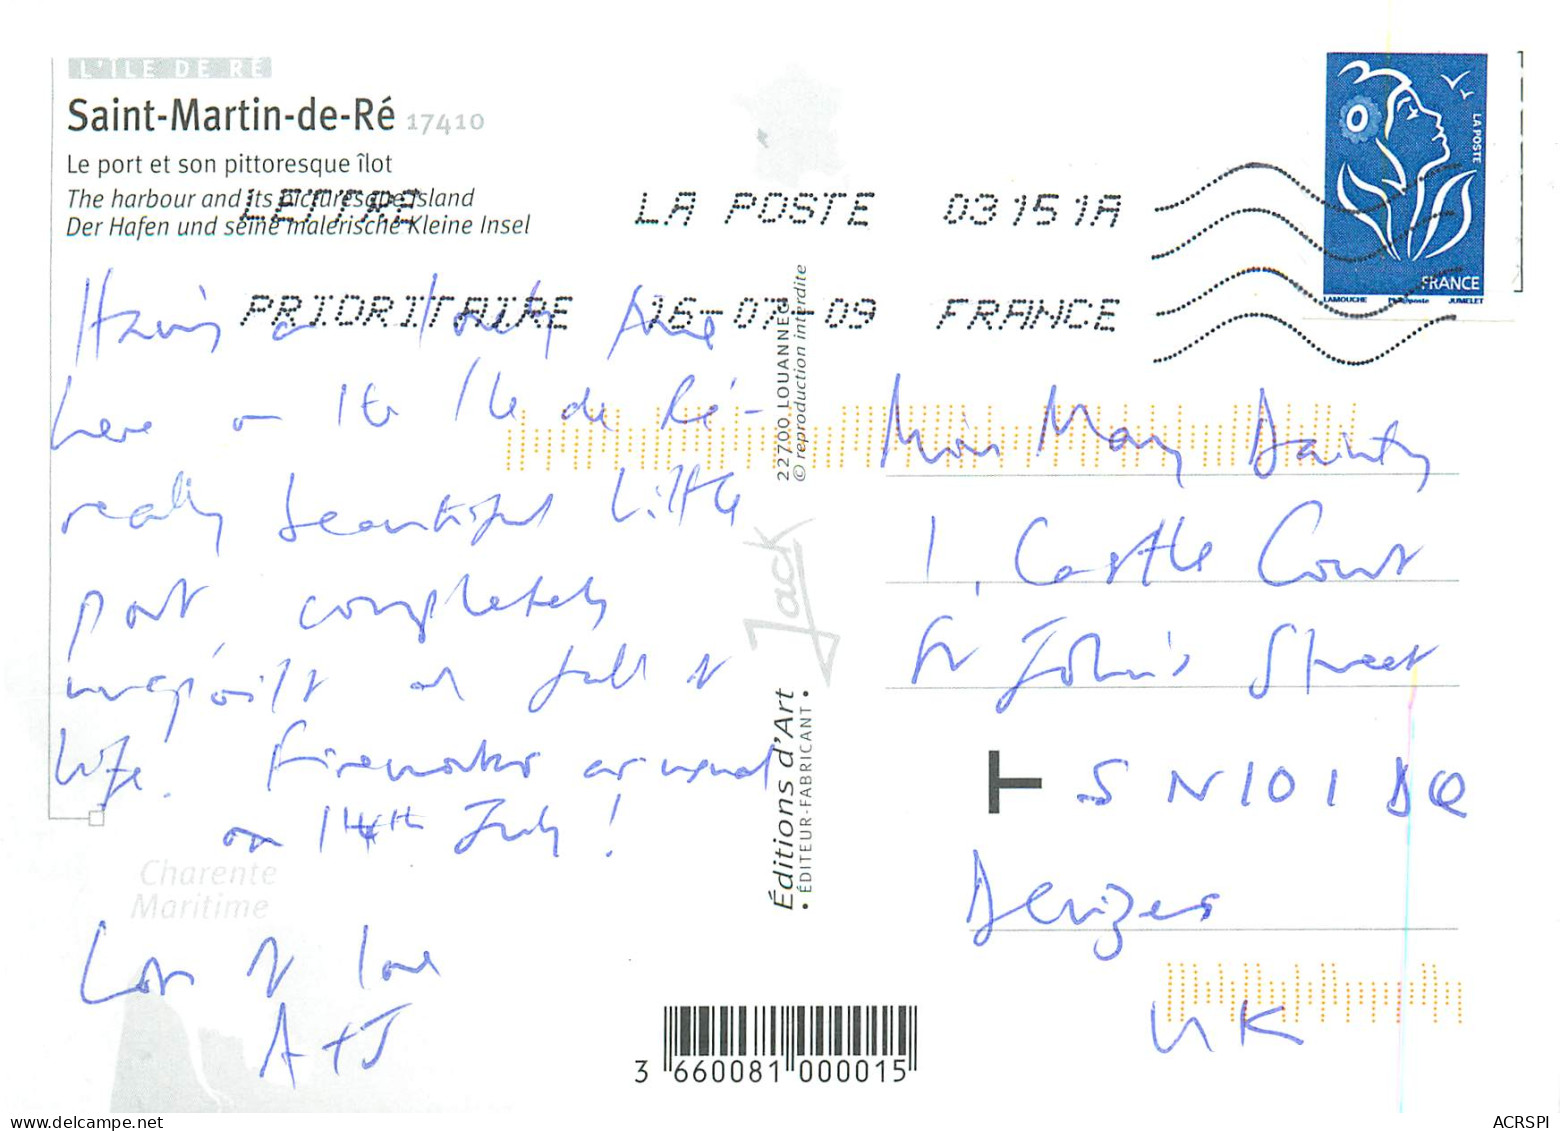 L'ÎLE DE RÉ
Saint-Martin-de-Ré 17410
Le port et son pittoresque îlot
The harbour and its picturesque island
Der Hafen und seine malerische Kleine Insel
LETTRE LA POSTE 03151A
PRIORITAIRE 16-07-09 FRANCE
LA POSTE
FRANCE
LAMOUCHE Phil@poste JUMELET
Having a lovely time
here on the Ile de Ré -
really beautiful little
port completely
unspoilt and full of
life. Fireworks as usual
on 14th July!
Lots of love
A + J
22700 LOUANNEC
© reproduction interdite
Jack
Éditions d'Art
• ÉDITEUR-FABRICANT •
Miss Mary Dainty
1, Castle Court
St John's Street
T SN101DQ
Devizes
UK
Charente
Maritime
3 660081 000015
ACRSPI